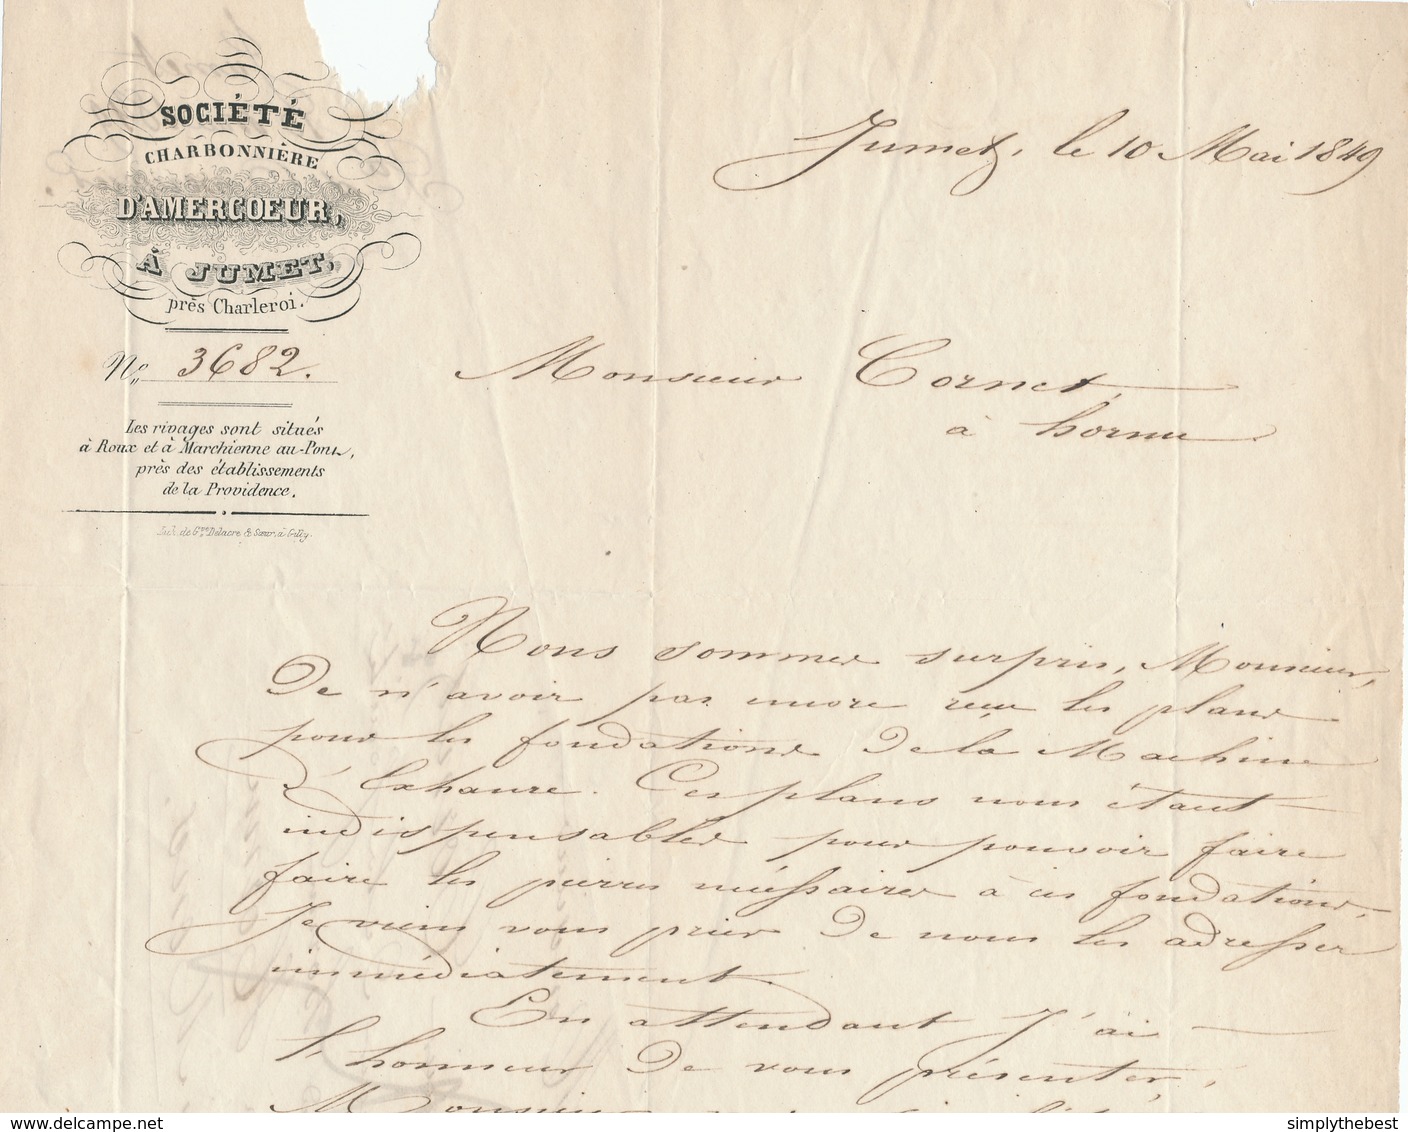 SOCIÉTÉ
CHARBONNIÈRE
D'AMERCOEUR,
À JUMET,
près Charleroi.
No 3682.
Les rivages sont situés
à Roux et à Marchienne au-Pont,
près des établissements
de la Providence.
Lith. de Gme Delacre & Sœur, à Gilly.
Jumet, le 10 Mai 1849
Monsieur Cornet,
à hornu
Nous sommes surpris, Monsieur,
De n'avoir pas encore reçu les plans
pour les fondations de la Machine
d'Exhaure. Ces plans nous étant
indispensables pour pouvoir faire
faire les pierres nécessaires à ces fondations,
Je viens vous prier de nous les adresser
immédiatement.
En attendant J'ai
l'honneur de vous présenter,
Monsieur
simplythebest